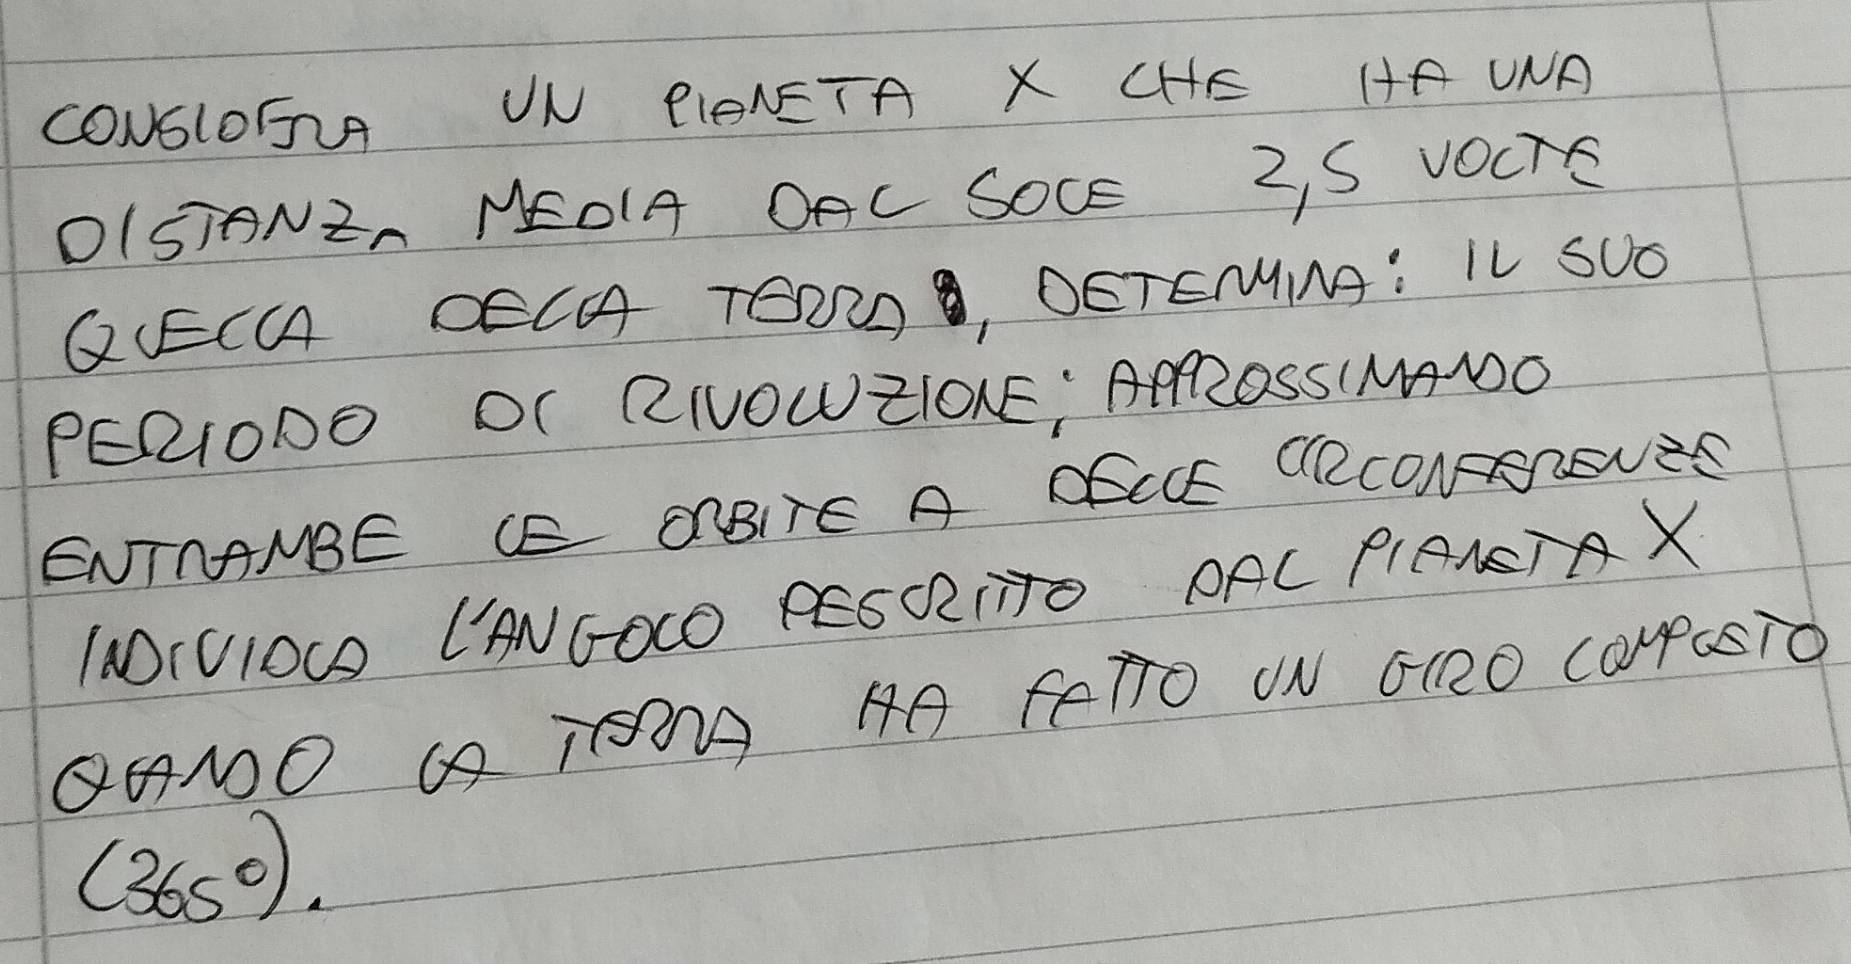 CONSIDERA UN PIANETA X CHE HA UNA
DISTANZA MEDIA DAL SOLE 2,5 VOLTE
QUELLA DELLA TERRA, DETERMINA: IL SUO
PERIODO DI RIVOLUZIONE; APPROSSIMANDO
ENTRAMBE LE ORBITE A DELLE CIRCONFERENZE
INDIVIDUA L'ANGOLO DESCRITTO DAL PIANETA X
QUANDO LA TERRA HA FATTO UN GIRO COMPOSTO
(365°).